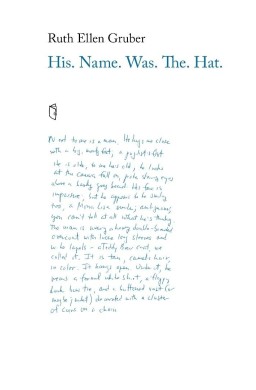 Ruth Ellen Gruber
His. Name. Was. The. Hat.
Next to me is a man. He hugs me close
with a big, manly foot, a
He is old, to me he's old, he looks
at the camera full on, pale staring eyes
above a bushy gray beard. His face is
impassive, but he appears to be smiling
too, a Mona Lisa smile, ambiguous,
you can't tell at all what he's thinking
The man is wearing a heavy double-breasted
overcoat with loose long sleeves and
wide lapels - a Teddy Bear coat, we
called it. It is tan, camel's hair,
in color. It hangs open. Under it, he
wears a formal white shirt, a floppy
dark bow tie, and a buttoned vest (or
maybe jacket) decorated with a cluster
of coins on a chain